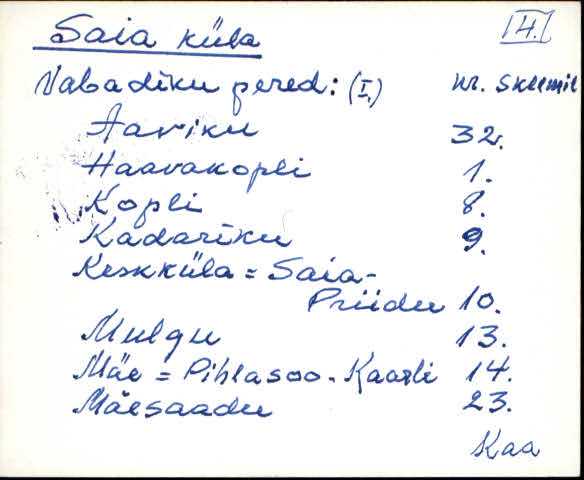 Saia küla 14.
Vabadiku pered: (I.) nr. skeemil
Aariku 32.
Haavakopli 1.
Kopli 8.
Kadariku 9.
Keskküla = Saia-
Priidu 10.
Mulgu 13.
Mäe = Pihlasoo-Kaarli 14.
Mäesaadu 23.
Kaa